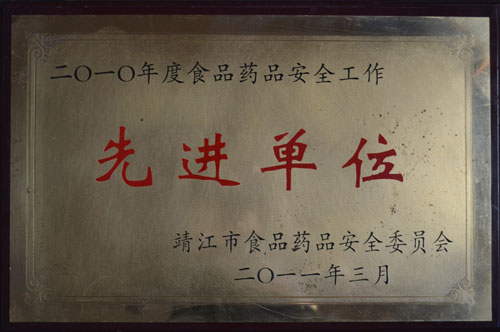 二〇一〇年度食品药品安全工作
先进单位
靖江市食品药品安全委员会
二〇一一年三月